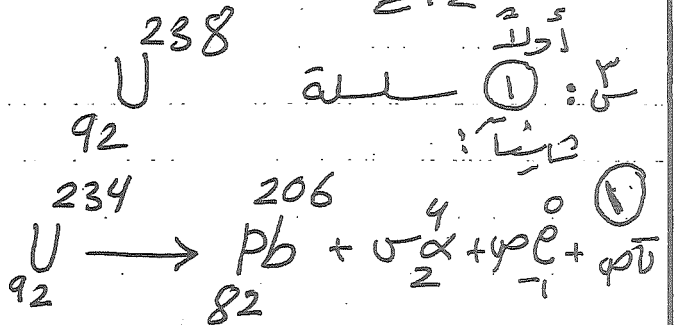 أولاً
س٣: ① سلسلة ²³⁸₉₂U
ثانياً:
① ²³⁴₉₂U → ²⁰⁶₈₂Pb + س ⁴₂α + ص ⁰₋₁e + ص ν̄